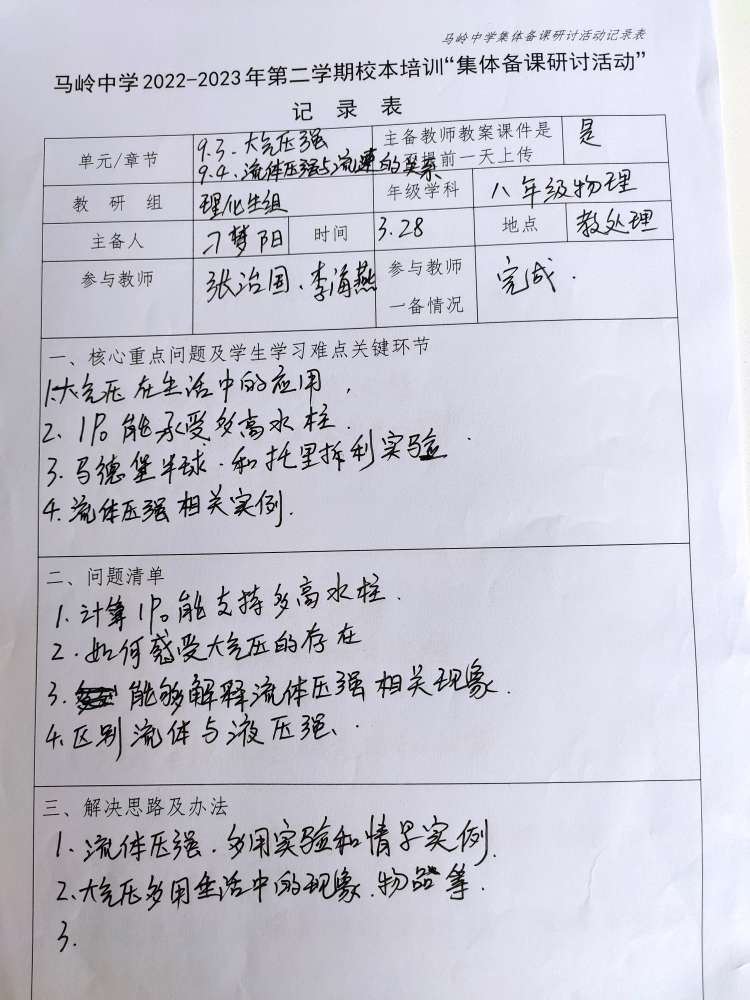 马岭中学集体备课研讨活动记录表
马岭中学2022-2023年第二学期校本培训“集体备课研讨活动”
记 录 表
单元/章节 9.3.大气压强 9.4.流体压强与流速的关系 主备教师教案课件是否提前一天上传 是
教 研 组 理化生组 年级学科 八年级物理
主备人 刁梦阳 时间 3.28 地点 教处理
参与教师 张治国、李海燕 参与教师一备情况 完成.
一、核心重点问题及学生学习难点关键环节
1.大气压在生活中的应用.
2、1P₀能承受多高水柱.
3.马德堡半球.和托里拆利实验.
4.流体压强相关实例.
二、问题清单
1.计算1P₀能支持多高水柱.
2.如何感受大气压的存在
3.能够解释流体压强相关现象.
4.区别流体与液压强、
三、解决思路及办法
1.流体压强.多用实验和情景实例.
2.大气压多用生活中的现象.物器等.
3.